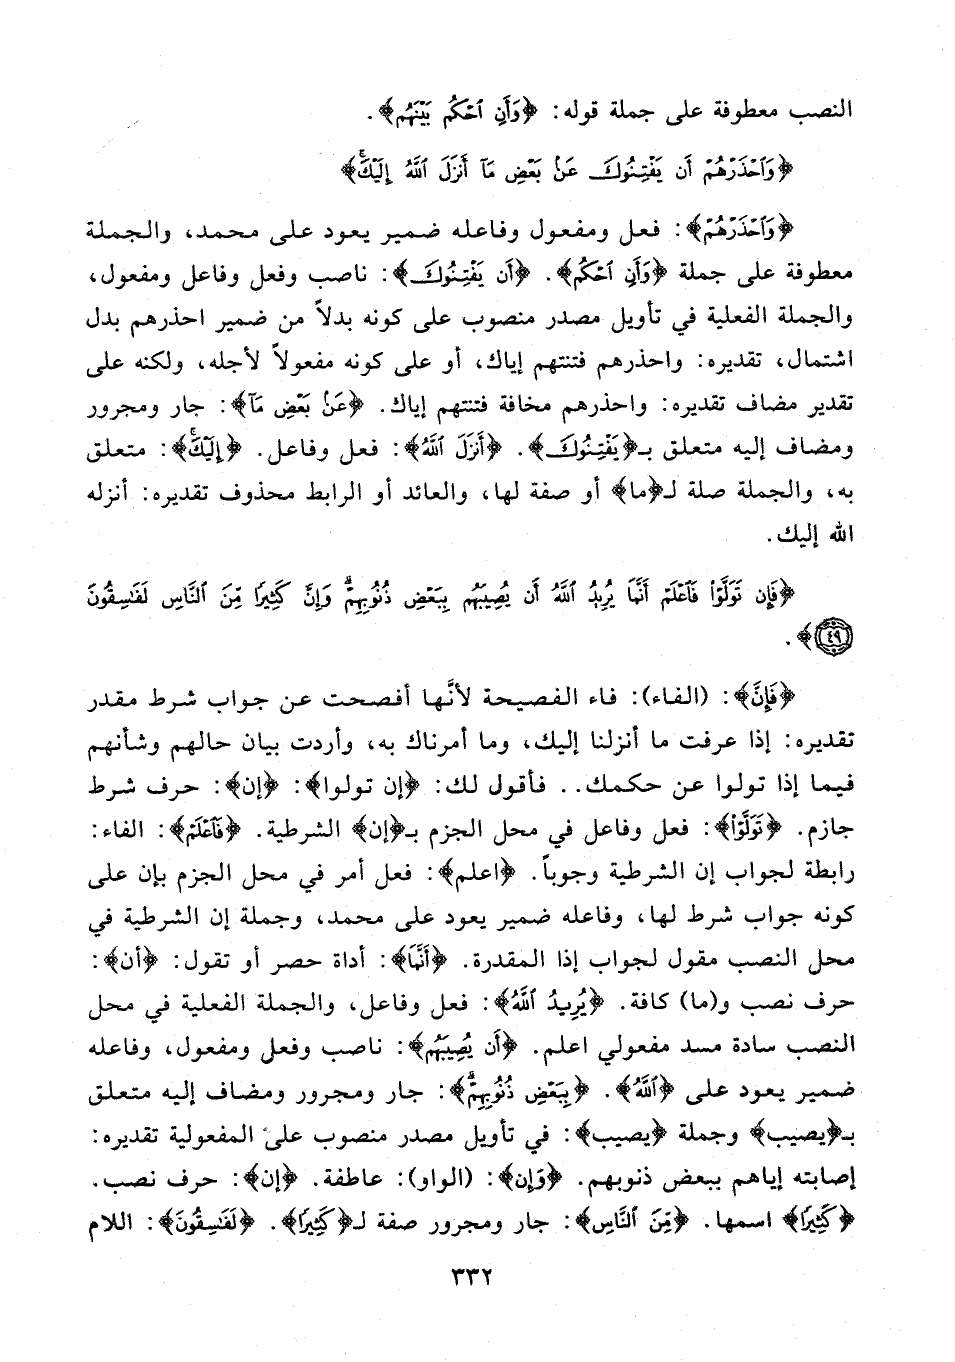 النصب معطوفة على جملة قوله: ﴿وَأَنِ ٱحْكُم بَيْنَهُم﴾.
﴿وَٱحْذَرْهُمْ أَن يَفْتِنُوكَ عَنۢ بَعْضِ مَآ أَنزَلَ ٱللَّهُ إِلَيْكَ﴾
﴿وَٱحْذَرْهُمْ﴾: فعل ومفعول وفاعله ضمير يعود على محمد، والجملة
معطوفة على جملة ﴿وَأَنِ ٱحْكُم﴾. ﴿أَن يَفْتِنُوكَ﴾: ناصب وفعل وفاعل ومفعول،
والجملة الفعلية في تأويل مصدر منصوب على كونه بدلاً من ضمير احذرهم بدل
اشتمال، تقديره: واحذرهم فتنتهم إياك، أو على كونه مفعولاً لأجله، ولكنه على
تقدير مضاف تقديره: واحذرهم مخافة فتنتهم إياك. ﴿عَنۢ بَعْضِ مَآ﴾: جار ومجرور
ومضاف إليه متعلق بـ﴿يَفْتِنُوكَ﴾. ﴿أَنزَلَ ٱللَّهُ﴾: فعل وفاعل. ﴿إِلَيْكَ﴾: متعلق
به، والجملة صلة لـ﴿ما﴾ أو صفة لها، والعائد أو الرابط محذوف تقديره: أنزله
الله إليك.
﴿فَإِن تَوَلَّوْا۟ فَٱعْلَمْ أَنَّمَا يُرِيدُ ٱللَّهُ أَن يُصِيبَهُم بِبَعْضِ ذُنُوبِهِمْ ۗ وَإِنَّ كَثِيرًا مِّنَ ٱلنَّاسِ لَفَـٰسِقُونَ
٤٩﴾.
﴿فَإِنَّ﴾: (الفاء): فاء الفصيحة لأنَّها أفصحت عن جواب شرط مقدر
تقديره: إذا عرفت ما أنزلنا إليك، وما أمرناك به، وأردت بيان حالهم وشأنهم
فيما إذا تولوا عن حكمك.. فأقول لك: ﴿إن تولوا﴾: ﴿إن﴾: حرف شرط
جازم. ﴿تَوَلَّوْا۟﴾: فعل وفاعل في محل الجزم بـ﴿إن﴾ الشرطية. ﴿فَٱعْلَمْ﴾: الفاء:
رابطة لجواب إن الشرطية وجوباً. ﴿اعلم﴾: فعل أمر في محل الجزم بإن على
كونه جواب شرط لها، وفاعله ضمير يعود على محمد، وجملة إن الشرطية في
محل النصب مقول لجواب إذا المقدرة. ﴿أَنَّمَا﴾: أداة حصر أو تقول: ﴿أن﴾:
حرف نصب و(ما) كافة. ﴿يُرِيدُ ٱللَّهُ﴾: فعل وفاعل، والجملة الفعلية في محل
النصب سادة مسد مفعولي اعلم. ﴿أَن يُصِيبَهُم﴾: ناصب وفعل ومفعول، وفاعله
ضمير يعود على ﴿ٱللَّهُ﴾. ﴿بِبَعْضِ ذُنُوبِهِمْ ۗ﴾: جار ومجرور ومضاف إليه متعلق
بـ﴿يصيب﴾ وجملة ﴿يصيب﴾: في تأويل مصدر منصوب على المفعولية تقديره:
إصابته إياهم ببعض ذنوبهم. ﴿وَإِن﴾: (الواو): عاطفة. ﴿إن﴾: حرف نصب.
﴿كَثِيرًا﴾ اسمها. ﴿مِّنَ ٱلنَّاسِ﴾: جار ومجرور صفة لـ﴿كَثِيرًا﴾. ﴿لَفَـٰسِقُونَ﴾: اللام
٣٣٢